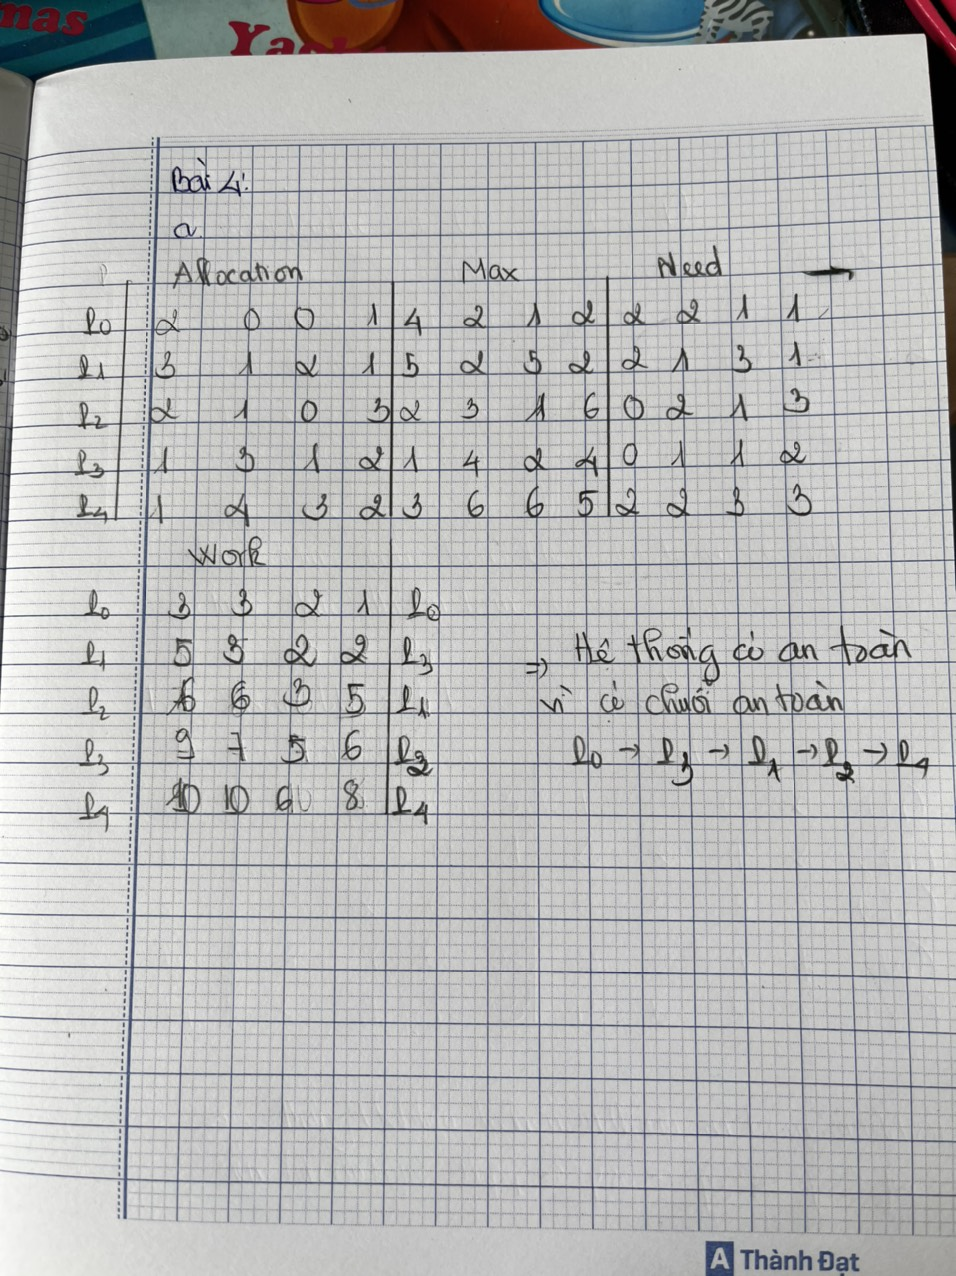 mas
Ya
Bài 4:
a.
Allocation Max Need →
P0 2 0 0 1 4 2 1 2 2 2 1 1
P1 3 1 2 1 5 2 5 2 2 1 3 1
P2 2 1 0 3 2 3 1 6 0 2 1 3
P3 1 3 1 2 1 4 2 4 0 1 1 2
P4 1 4 3 2 3 6 6 5 2 2 3 3
Work
P0 3 3 2 1 P0
P1 5 3 2 2 P3
P2 6 6 3 5 P1
P3 9 7 5 6 P2
P4 10 10 6 8 P4
⇒ Hệ thống có an toàn
vì có chuỗi an toàn
P0 → P3 → P1 → P2 → P4
A Thành Đạt